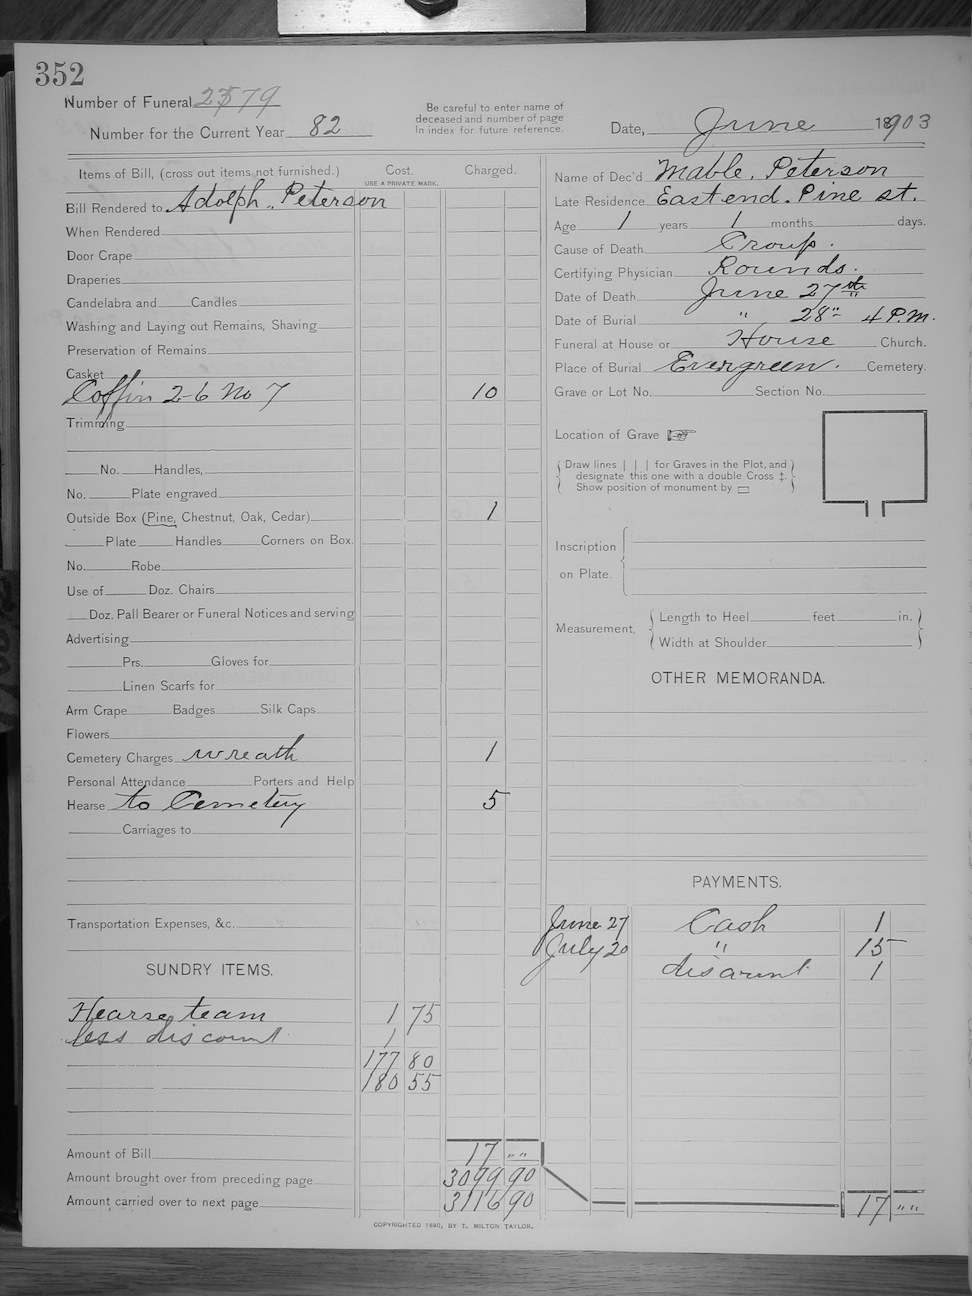 352
Number of Funeral 2379
Number for the Current Year 82
Be careful to enter name of
deceased and number of page
in index for future reference.
Date, June 1903
Items of Bill, (cross out items not furnished.)
Cost.
USE A PRIVATE MARK.
Charged.
Bill Rendered to Adolph. Peterson
When Rendered
Door Crape
Draperies
Candelabra and Candles
Washing and Laying out Remains, Shaving
Preservation of Remains
Casket
Coffin 2-6 No 7 10
Trimming
No. Handles,
No. Plate engraved
Outside Box (Pine, Chestnut, Oak, Cedar) 1
Plate Handles Corners on Box.
No. Robe
Use of Doz. Chairs
Doz. Pall Bearer or Funeral Notices and serving
Advertising
Prs. Gloves for
Linen Scarfs for
Arm Crape Badges Silk Caps
Flowers
Cemetery Charges wreath 1
Personal Attendance Porters and Help
Hearse to Cemetery 5
Carriages to
Transportation Expenses, &c.
SUNDRY ITEMS.
Hearse team 1 75
less discount 1
177 80
180 55
Amount of Bill 17 " "
Amount brought over from preceding page 3099 90
Amount carried over to next page 3116 90
Name of Dec'd Mable. Peterson
Late Residence East end. Pine st.
Age 1 years 1 months days.
Cause of Death Croup.
Certifying Physician Rounds.
Date of Death June 27th
Date of Burial " 28" 4 P.M.
Funeral at House or House Church.
Place of Burial Evergreen. Cemetery.
Grave or Lot No. Section No.
Location of Grave
Draw lines | | | for Graves in the Plot, and
designate this one with a double Cross ‡.
Show position of monument by ▭
Inscription
on Plate.
Measurement,
Length to Heel feet in.
Width at Shoulder
OTHER MEMORANDA.
PAYMENTS.
June 27 Cash 1
July 20 " 15
discount 1
17 " "
COPYRIGHTED 1890, BY T. MILTON TAYLOR.